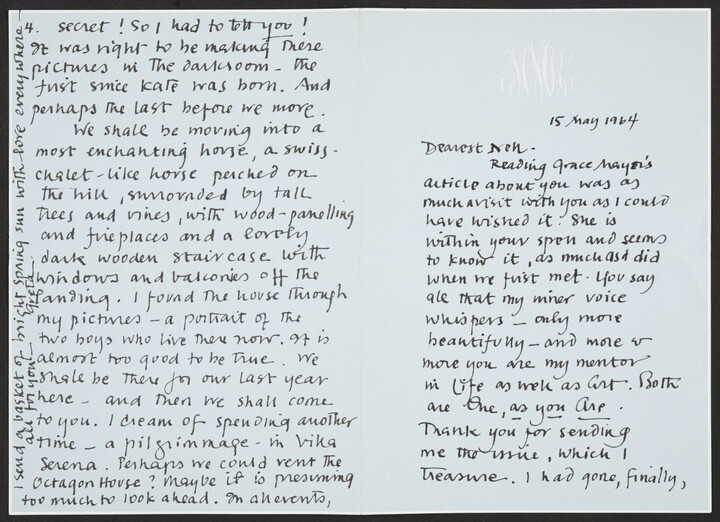 4. secret! So I had to tell you!
It was right to be making there
pictures in the darkroom - the
first since Kate was born. And
perhaps the last before we move.
We shall be moving into a
most enchanting house, a swiss-
chalet-like house perched on
the hill, surrounded by tall
trees and vines, with wood-panelling
and fireplaces and a lovely
dark wooden staircase with
windows and balconies off the
landing. I found the house through
my pictures - a portrait of the
two boys who live there now. It is
almost too good to be true. We
shall be there for our last year
here - and then we shall come
to you. I dream of spending another
time - a pilgrimmage - in Villa
Serena. Perhaps we could rent the
Octagon House? Maybe it is presuming
too much to look ahead. In all events,
I send a basket of bright spring sun with love everywhere -
all for you - Greta
MMK
15 May 1964
Dearest Nell -
Reading Grace Mayer's
article about you was as
much a visit with you as I could
have wished it. She is
within your spell and seems
to know it, as much as I did
when we first met. You say
all that my inner voice
whispers - only more
beautifully - and more &
more you are my mentor
in Life as well as Art. Both
are One, as you Are.
Thank you for sending
me the issue, which I
treasure. I had gone, finally,